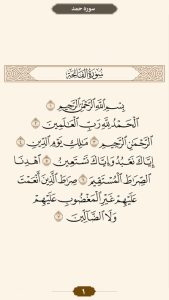 سوره حمد
سُورَةُ الْفَاتِحَةِ
بِسْمِ اللَّهِ الرَّحْمَٰنِ الرَّحِيمِ ١
الْحَمْدُ لِلَّهِ رَبِّ الْعَالَمِينَ ٢
الرَّحْمَٰنِ الرَّحِيمِ ٣ مَالِكِ يَوْمِ الدِّينِ ٤
إِيَّاكَ نَعْبُدُ وَإِيَّاكَ نَسْتَعِينُ ٥ اهْدِنَا
الصِّرَاطَ الْمُسْتَقِيمَ ٦ صِرَاطَ الَّذِينَ أَنْعَمْتَ
عَلَيْهِمْ غَيْرِ الْمَغْضُوبِ عَلَيْهِمْ
وَلَا الضَّالِّينَ ٧
١